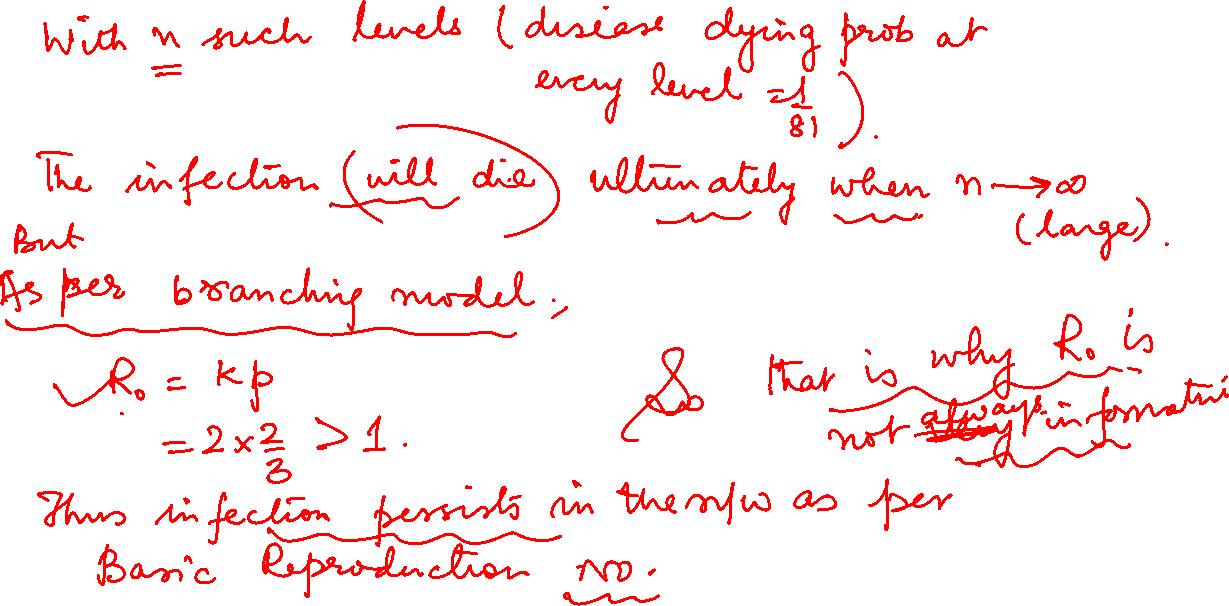 With n such levels (disease dying prob at
every level = 1/81).
The infection (will die) ultimately when n → ∞
(large).
But
As per branching model,
R₀ = kp
= 2 × 2/3 > 1.
So that is why R₀ is
not always informative
Thus infection persists in the n/w as per
Basic Reproduction No.